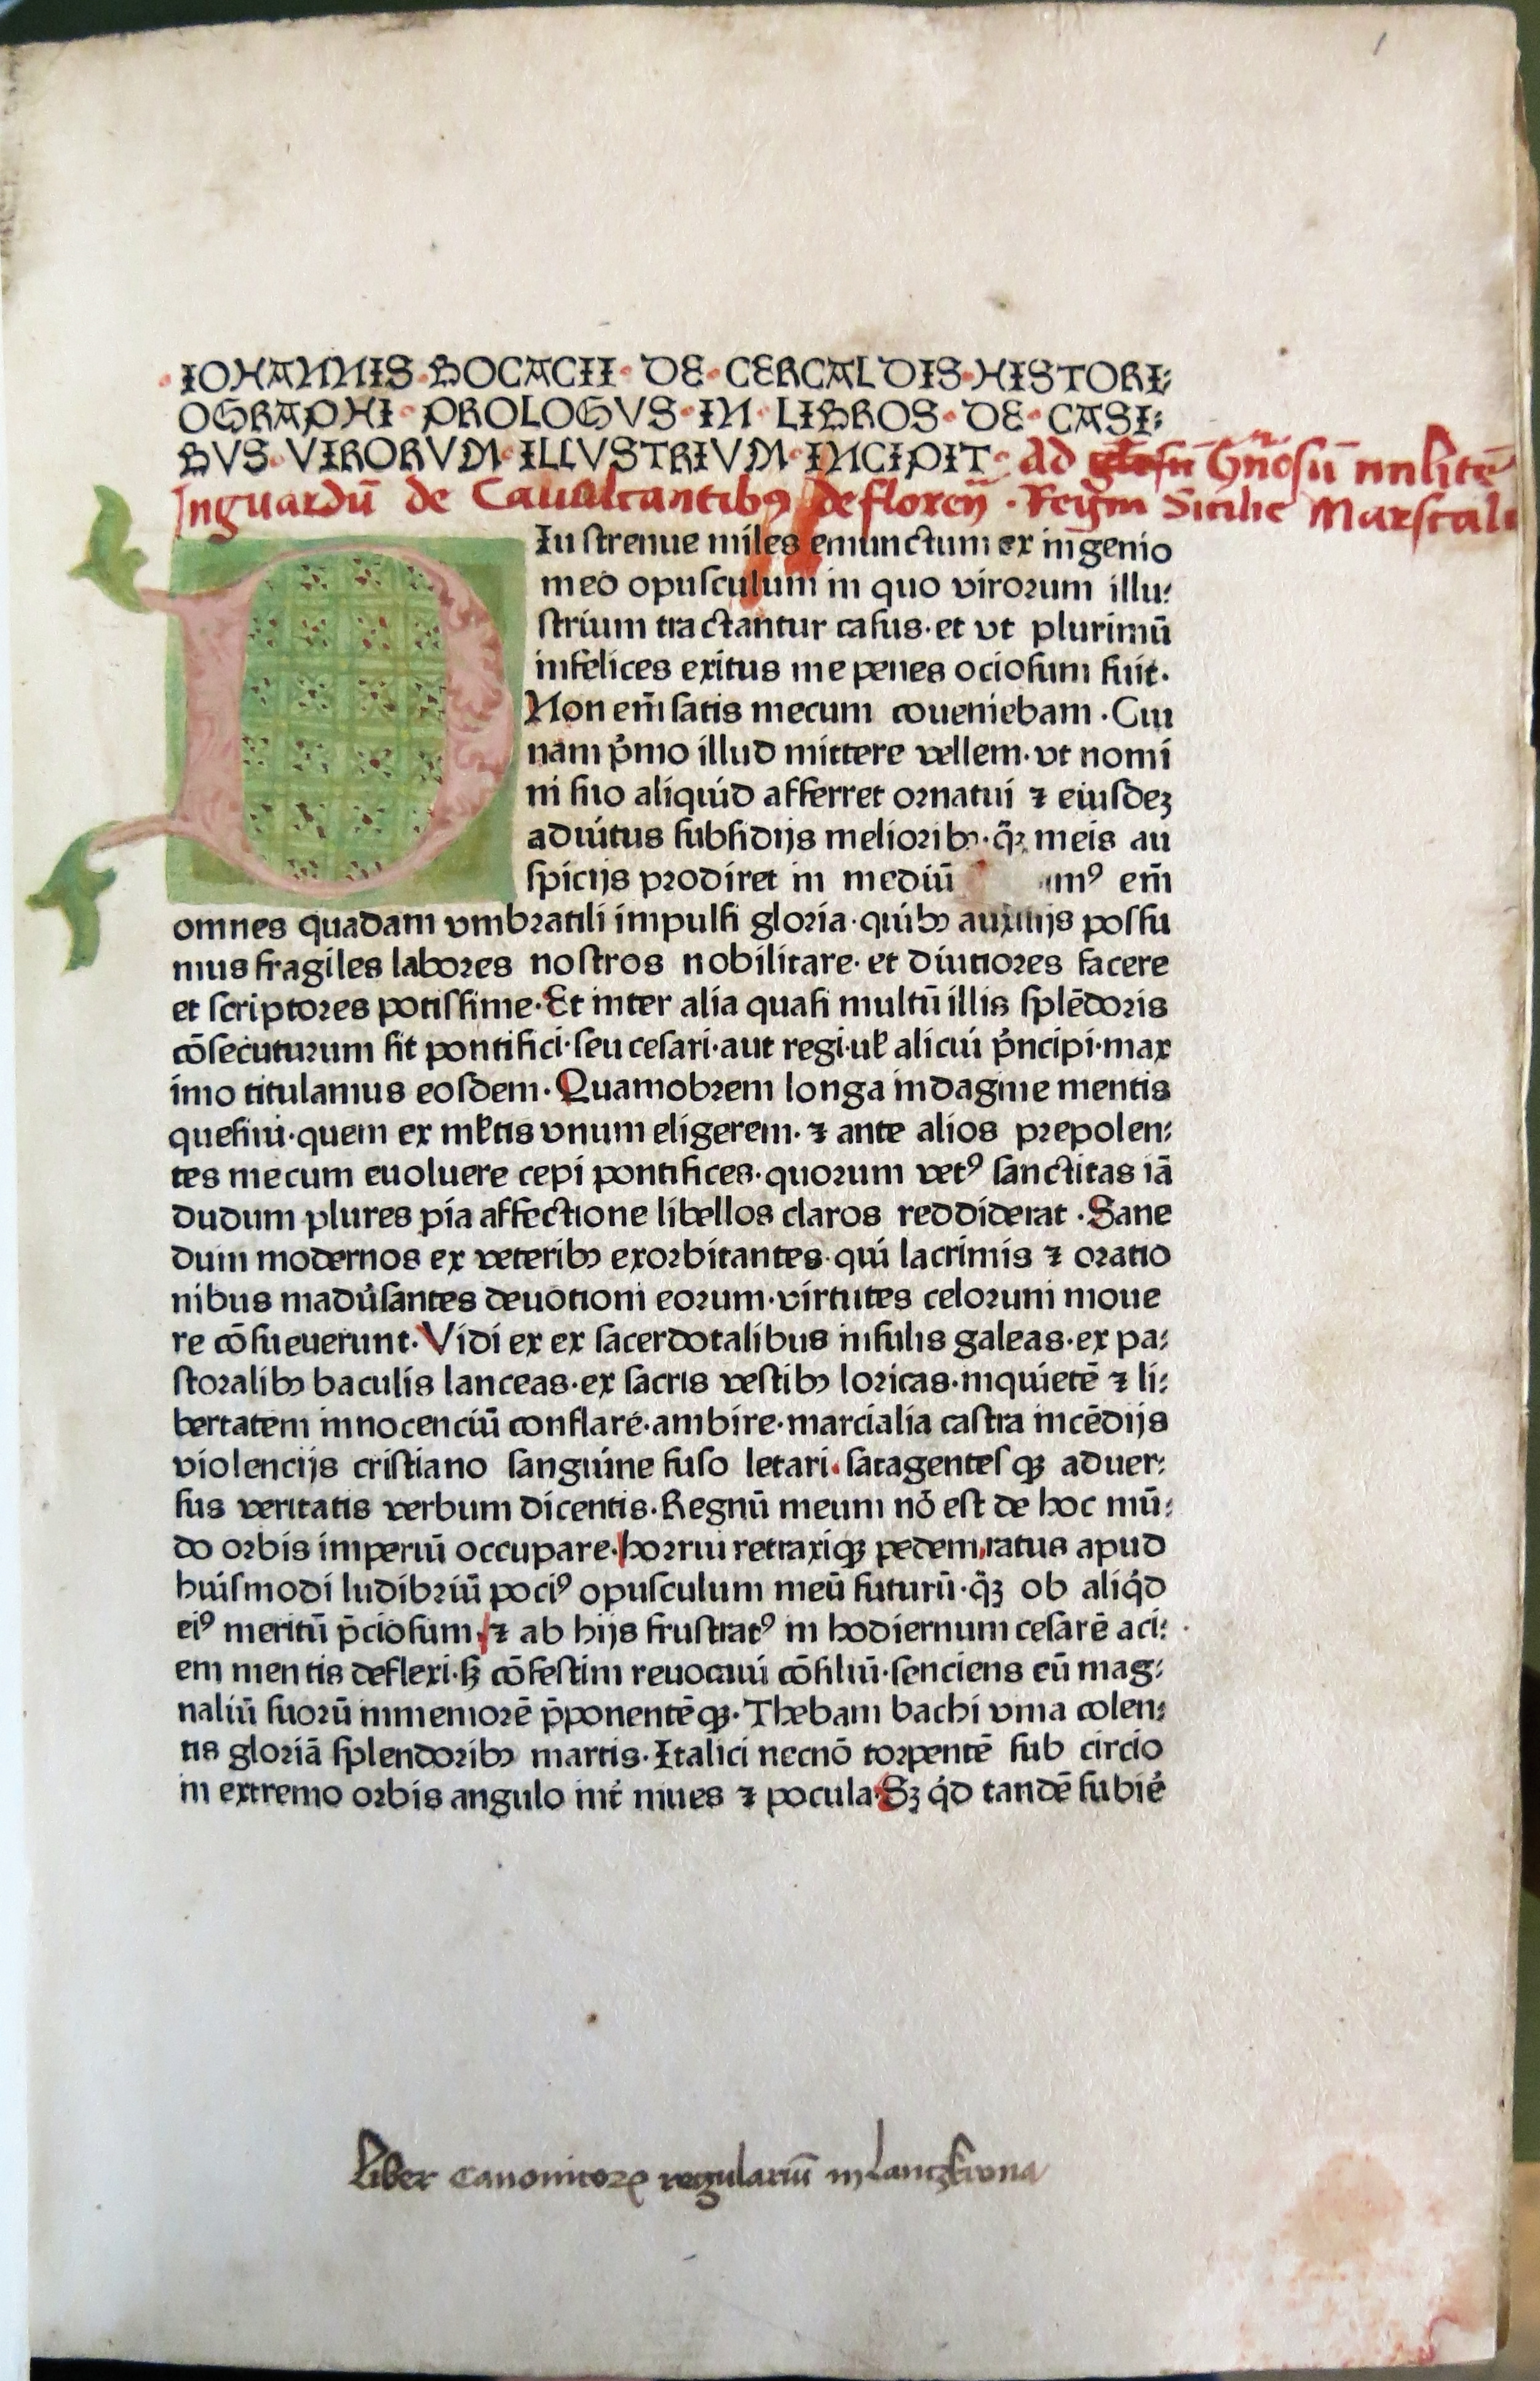 IOHANNIS·BOCACII·DE·CERCALDIS·HISTORI⸗
OGRAPHI·PROLOGVS·IN·LIBROS·DE·CASI⸗
BVS·VIRORVM·ILLVSTRIVM·INCIPIT· Ad Gn̄osū militē
Inguardū de Caualcantibꝰ de floren̄ · Regm̄ Sicilie Marscalc
DIu ſtrenue miles emunctum ex ingenio
meo opuſculum in quo viroꝛum illu⸗
ſtrium tractantur caſus·et vt plurimū
infelices exitus me penes ocioſum fuit·
Non em̄ ſatis mecum coueniebam·Cui
nam p̓mo illud mittere vellem·vt nomi
ni ſuo aliquid afferret oꝛnatui ⁊ eiuſdeꝫ
adiutus ſubſidijs melioꝛibꝫ·q̄ꝫ meis au
ſpicijs pꝛodiret in mediū mꝰ em̄
omnes quadam vmbꝛatili impulſi gloꝛia·quibꝫ auxilijs poſſu
mus fragiles laboꝛes noſtros nobilitare·et diutioꝛes facere
et ſcriptoꝛes potiſſime·Et inter alia quaſi multū illis ſplēdoꝛis
cōſecuturum ſit pontifici·ſeu ceſari·aut regi·uł alicui p̓ncipi·max
imo titulamus eoſdem·Quamobꝛem longa indagine mentis
queſiui·quem ex młtis vnum eligerem·⁊ ante alios pꝛepolen⸗
tes mecum euoluere cepi pontifices·quoꝛum vetꝰ ſanctitas iā
dudum plures pia affectione libellos claros reddiderat·Sane
dum modernos ex veteribꝫ exoꝛbitantes·qui lacrimis ⁊ oꝛatio
nibus madu̓ſantes deuotioni eoꝛum·virtutes celoꝛum moue
re cōſueuerunt·Vidi ex ex ſacerdotalibus infulis galeas·ex pa⸗
ſtoꝛalibꝫ baculis lanceas·ex ſacris veſtibꝫ loꝛicas·inquietē ⁊ li⸗
bertatem innocenciū conflare·ambire·marcialia caſtra incēdijs
violencijs criſtiano ſanguine fuſo letari·ſatagenteſqꝫ aduer⸗
ſus veritatis verbum dicentis·Regnū meum nō eſt de hoc mū⸗
do oꝛbis imperiū occupare·hoꝛrui retraxiqꝫ pedem,ratus apud
huiſmodi ludibꝛiū pociꝰ opuſculum meū futurū·q̄ꝫ ob aliq̓d
eiꝰ meritū p̄cioſum,⁊ ab hijs fruſtratꝰ in hodiernum ceſarē aci⸗
em mentis deflexi·ſꝫ cōfeſtim reuocaui cōſiliū·ſenciens eū mag⸗
naliū ſuoꝛū inmemoꝛē p̄ponentēqꝫ·Thebam bachi vina colen⸗
tis gloꝛiā ſplendoꝛibꝫ martis·Italici necnō toꝛpentē ſub circio
in extremo oꝛbis angulo int̓ niues ⁊ pocula·Sꝫ q̓d tandē ſubie̓
Liber Canonicoꝝ regulariū in Lanczkrona